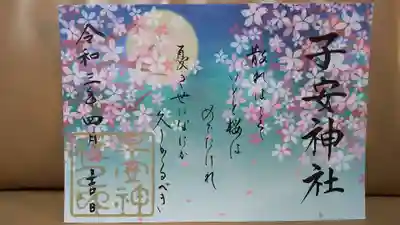 子安神社
散ればこそ
いとど桜は
めでたけれ
憂き世になにか
久しかるべき
令和三年四月吉日